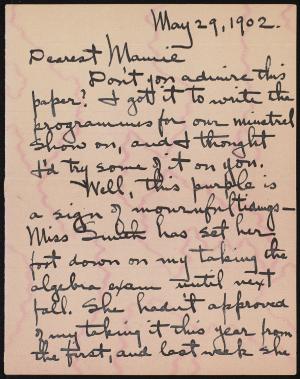 May 29, 1902.
Dearest Mamie
Don't you admire this
paper? I got it to write the
programmes for our minstrel
show on, and I thought
I'd try some of it on you.
Well, this purple is
a sign of mournful tidings—
Miss Smith has set her
foot down on my taking the
algebra exam until next
fall. She hadn't approved
of my taking it this year from
the first, and last week she